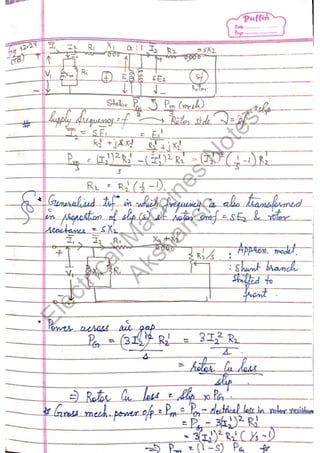 Puffin
Date
Page
12.24
I1 I2 R1 X1 a:1 I2 R2 sX2
V1 Xm Ri E1 sE2 sf
Rotor
Stator Pm/3 Pm (mech)
# Supply frequency = f → Rotor side → sf slip
I2 = sE1 = E1'
R2' + jsX2' R2' + jX2'
s
Pm/3 = (I2')² R2' - (I2')² R2' = (I2')² (1/s - 1) R2'
s
RL = R2' (1/s - 1).
* Generalised t/f in which frequency is also transformed
in proportion of slip (s) of rotor emf = sE2 & rotor
reactance = sX2
I1 I2' R1 X1 + X2
V1 R2/s
: Approx. model.
: Shunt branch
shifted to
front.
• Power across air gap
PG = (3I2')² R2' = 3I2² R2
s s
= Rotor Cu loss
slip
⇒ Rotor Cu loss = slip × PG
* Gross mech. power o/p = Pm = PG - electrical loss in rotor resistance
= PG - 3(I2')² R2'
= 3(I2')² R2' (1/s - 1)
⇒ Pm = (1-s) PG
Electrical Machines Notes